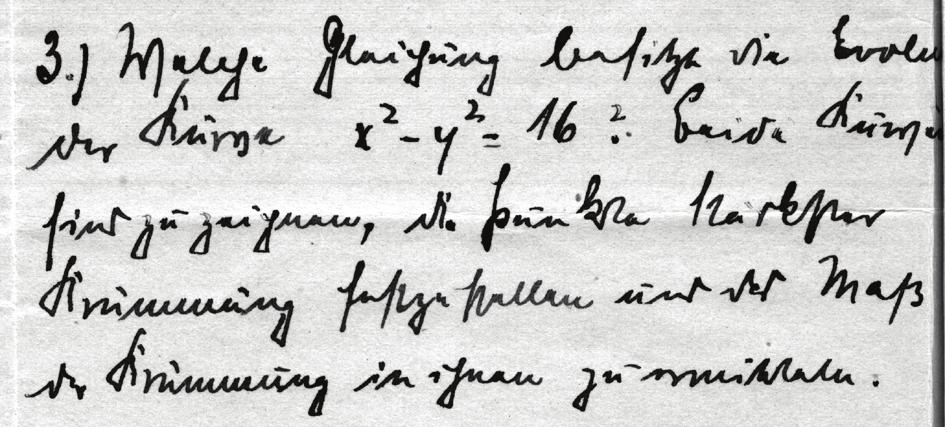 3.) Welche Gleichung besitzt die Evolu
der Kurve x² - y² = 16 ? Beide Kurve
sind zu zeichnen, die Punkte stärkster
Krümmung festzustellen und das Maß
der Krümmung in ihnen zu ermitteln.